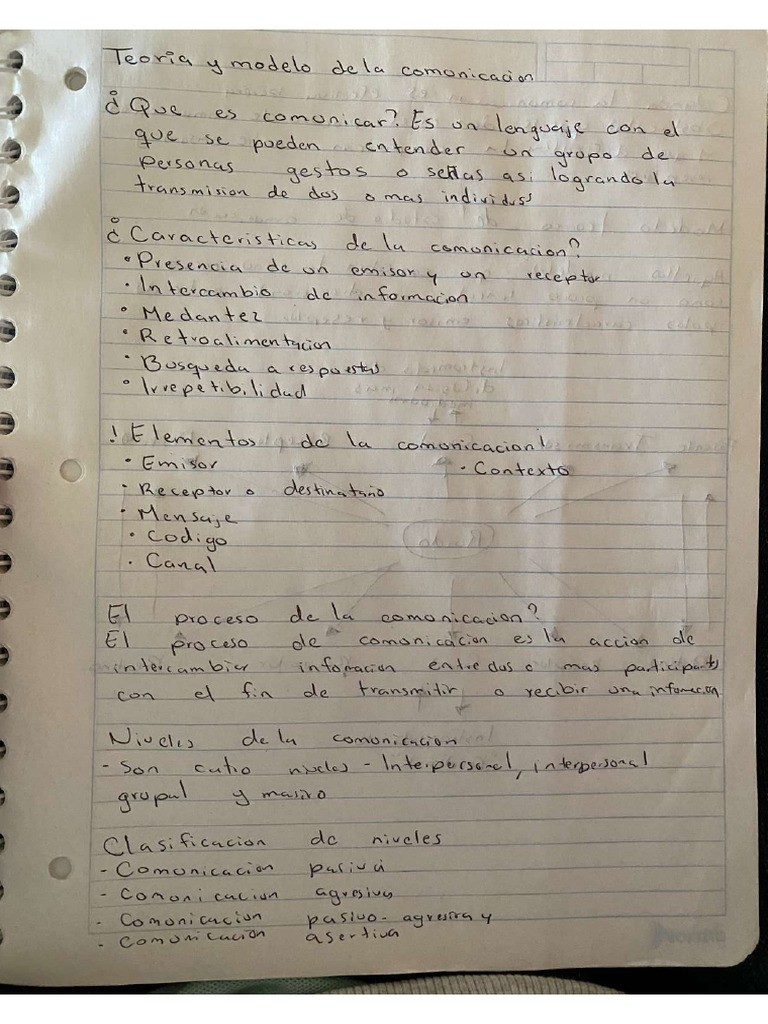 Teoria y modelo de la comonicacion
¿Que es comonicar? Es un lenguaje con el
que se pueden entender un grupo de
personas gestos o señas asi logrando la
transmision de dos o mas individuss
¿Caracteristicas de la comonicacion?
• Presencia de un emisor y un receptor
• Intercambio de informacion
• Medantez
• Retroalimentacion
• Busqueda a respuestas
• Irrepetibilidad
! Elementos de la comonicacion!
• Emisor
- Contexto
• Receptor o destinatario
• Mensaje
• Codigo
• Canal
El proceso de la comonicacion?
El proceso de comonicacion es la accion de
intercambiar infomacion entre dos o mas participantes
con el fin de transmitir o recibir una infomacion
Niveles de la comonicacion
- Son catro niveles - Interpersonal, interpersonal
grupal y masivo
Clasificacion de niveles
- Comonicacion pasiva
- Comonicacion agresiva
- Comonicacion pasivo-agresiva y
- Comonicacion asertiva